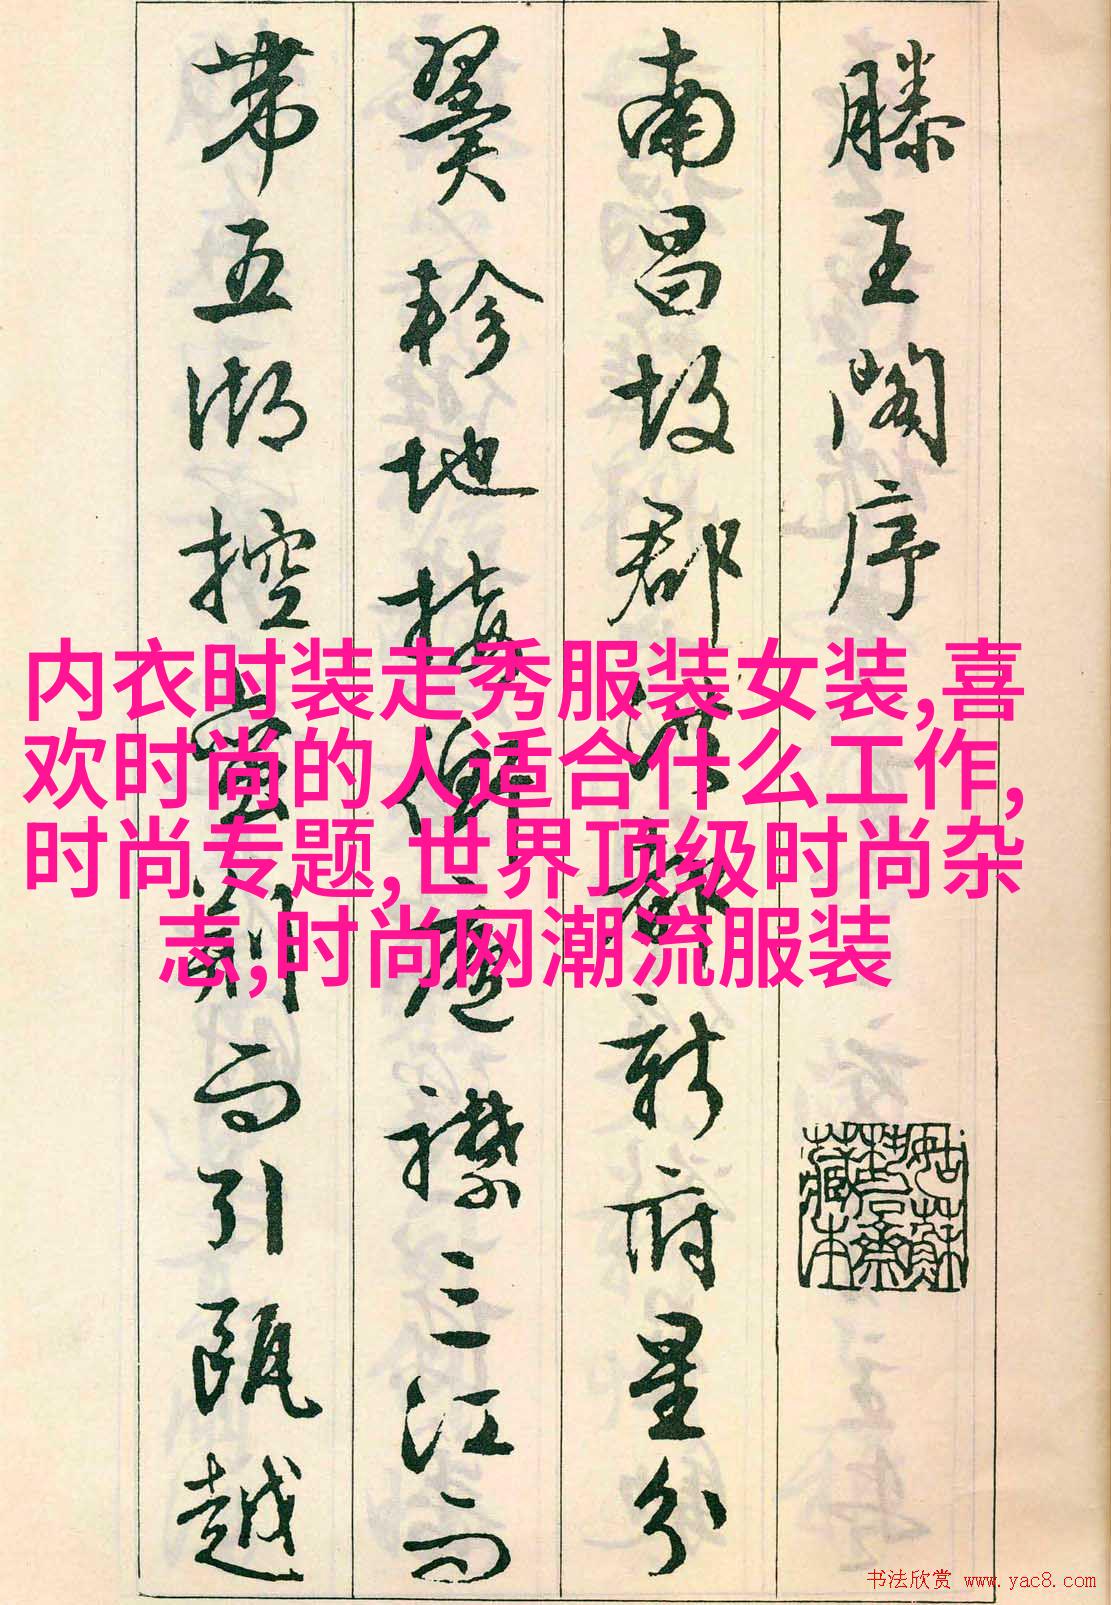 滕王閣序
南昌故郡洪都新府星分
翼軫地接衡廬襟三江而
帶五湖控蠻荊而引甌越
内衣时装走秀服装女装,喜
欢时尚的人适合什么工作,
时尚专题,世界顶级时尚杂
志,时尚网潮流服装
书法欣赏 www.yac8.com